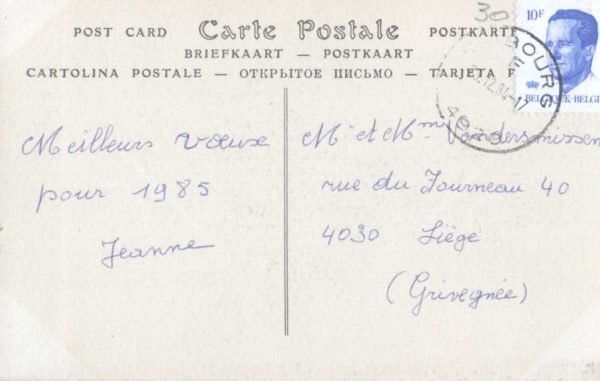 30
POST CARD Carte Postale POSTKARTE
BRIEFKAART — POSTKAART
CARTOLINA POSTALE — ОТКРЫТОЕ ПИСЬМО — TARJETA
10F
BELGIQUE-BELGI
BOURG
12.84-17
4820
Meilleurs vœux
pour 1985
Jeanne
M. et Mm Vandersmissen
rue du Fourneau 40
4030 Liège
(Grivegnée)